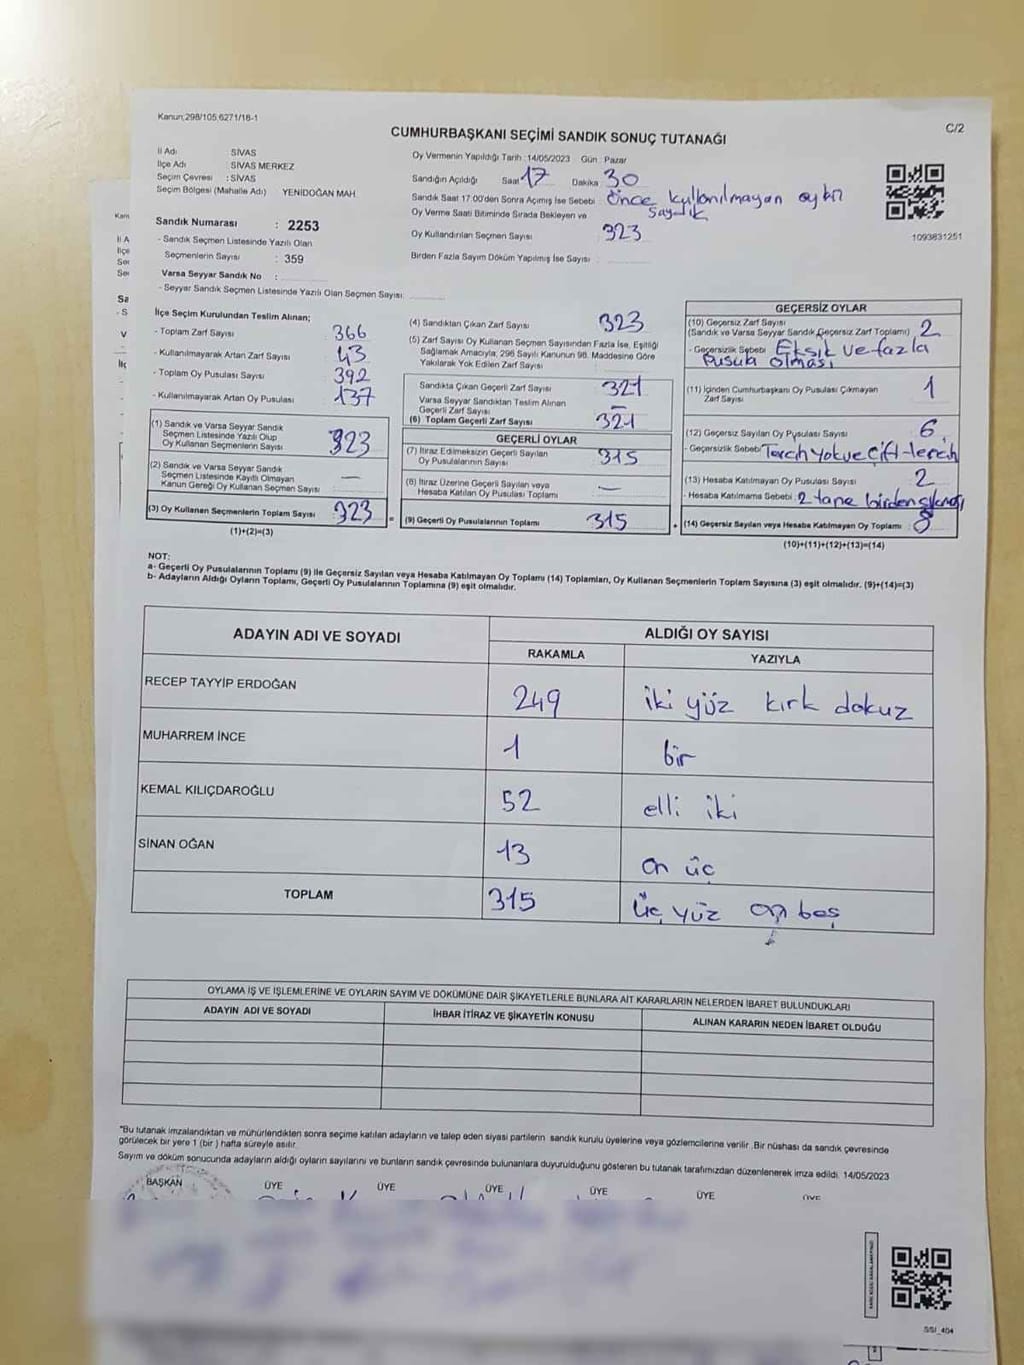 Kanun;298/105,6271/18-1
C/2
CUMHURBAŞKANI SEÇİMİ SANDIK SONUÇ TUTANAĞI
İl Adı : SİVAS
İlçe Adı : SİVAS MERKEZ
Seçim Çevresi : SİVAS
Seçim Bölgesi (Mahalle Adı) YENİDOĞAN MAH.
Sandık Numarası : 2253
- Sandık Seçmen Listesinde Yazılı Olan
Seçmenlerin Sayısı : 359
Varsa Seyyar Sandık No :
- Seyyar Sandık Seçmen Listesinde Yazılı Olan Seçmen Sayısı:
Oy Vermenin Yapıldığı Tarih :14/05/2023 Gün : Pazar
Sandığın Açıldığı Saat 17 Dakika 30
Sandık Saat 17.00'den Sonra Açımış İse Sebebi : önce kullanılmayan oyları
saydık
Oy Verme Saati Bitiminde Sırada Bekleyen ve
Oy Kullandırılan Seçmen Sayısı 323
Birden Fazla Sayım Döküm Yapılmış İse Sayısı :
1093831251
İlçe Seçim Kurulundan Teslim Alınan;
- Toplam Zarf Sayısı 366
- Kullanılmayarak Artan Zarf Sayısı 43
- Toplam Oy Pusulası Sayısı 392
- Kullanılmayarak Artan Oy Pusulası 137
(1) Sandık ve Varsa Seyyar Sandık
Seçmen Listesinde Yazılı Olup
Oy Kullanan Seçmenlerin Sayısı 323
(2) Sandık ve Varsa Seyyar Sandık
Seçmen Listesinde Kayıtlı Olmayan
Kanun Gereği Oy Kullanan Seçmen Sayısı —
(3) Oy Kullanan Seçmenlerin Toplam Sayısı 323
(1)+(2)=(3)
(4) Sandıktan Çıkan Zarf Sayısı 323
(5) Zarf Sayısı Oy Kullanan Seçmen Sayısından Fazla İse, Eşitliği
Sağlamak Amacıyla, 298 Sayılı Kanunun 98. Maddesine Göre
Yakılarak Yok Edilen Zarf Sayısı
Sandıkta Çıkan Geçerli Zarf Sayısı 321
Varsa Seyyar Sandıktan Teslim Alınan
Geçerli Zarf Sayısı —
(6) Toplam Geçerli Zarf Sayısı 321
GEÇERLİ OYLAR
(7) İtiraz Edilmeksizin Geçerli Sayılan
Oy Pusulalarının Sayısı 315
(8) İtiraz Üzerine Geçerli Sayılan veya
Hesaba Katılan Oy Pusulası Toplamı —
= (9) Geçerli Oy Pusulalarının Toplamı 315 +
GEÇERSİZ OYLAR
(10) Geçersiz Zarf Sayısı
(Sandık ve Varsa Seyyar Sandık Geçersiz Zarf Toplamı) 2
- Geçersizlik Sebebi Eksik ve fazla
Pusula olması
(11) İçinden Cumhurbaşkanı Oy Pusulası Çıkmayan
Zarf Sayısı 1
(12) Geçersiz Sayılan Oy Pusulası Sayısı 6
- Geçersizlik Sebebi Tercih yok ve Çift tercih
(13) Hesaba Katılmayan Oy Pusulası Sayısı 2
- Hesaba Katılmama Sebebi : 2 tane birden çıkması
(14) Geçersiz Sayılan veya Hesaba Katılmayan Oy Toplamı : 8
(10)+(11)+(12)+(13)=(14)
NOT:
a- Geçerli Oy Pusulalarının Toplamı (9) ile Geçersiz Sayılan veya Hesaba Katılmayan Oy Toplamı (14) Toplamları, Oy Kullanan Seçmenlerin Toplam Sayısına (3) eşit olmalıdır. (9)+(14)=(3)
b- Adayların Aldığı Oyların Toplamı, Geçerli Oy Pusulalarının Toplamına (9) eşit olmalıdır.
ADAYIN ADI VE SOYADI ALDIĞI OY SAYISI
RAKAMLA YAZIYLA
RECEP TAYYİP ERDOĞAN 249 iki yüz kırk dokuz
MUHARREM İNCE 1 bir
KEMAL KILIÇDAROĞLU 52 elli iki
SİNAN OĞAN 13 on üç
TOPLAM 315 üç yüz on beş
OYLAMA İŞ VE İŞLEMLERİNE VE OYLARIN SAYIM VE DÖKÜMÜNE DAİR ŞİKAYETLERLE BUNLARA AİT KARARLARIN NELERDEN İBARET BULUNDUKLARI
ADAYIN ADI VE SOYADI İHBAR İTİRAZ VE ŞİKAYETİN KONUSU ALINAN KARARIN NEDEN İBARET OLDUĞU
"Bu tutanak imzalandıktan ve mühürlendikten sonra seçime katılan adayların ve talep eden siyasi partilerin sandık kurulu üyelerine veya gözlemcilerine verilir .Bir nüshası da sandık çevresinde
görülecek bir yere 1 (bir ) hafta süreyle asılır.
Sayım ve döküm sonucunda adayların aldığı oyların sayılarını ve bunların sandık çevresinde bulunanlara duyurulduğunu gösteren bu tutanak tarafımızdan düzenlenerek imza edildi. 14/05/2023
BAŞKAN ÜYE ÜYE ÜYE ÜYE ÜYE ÜYE
SSI_404